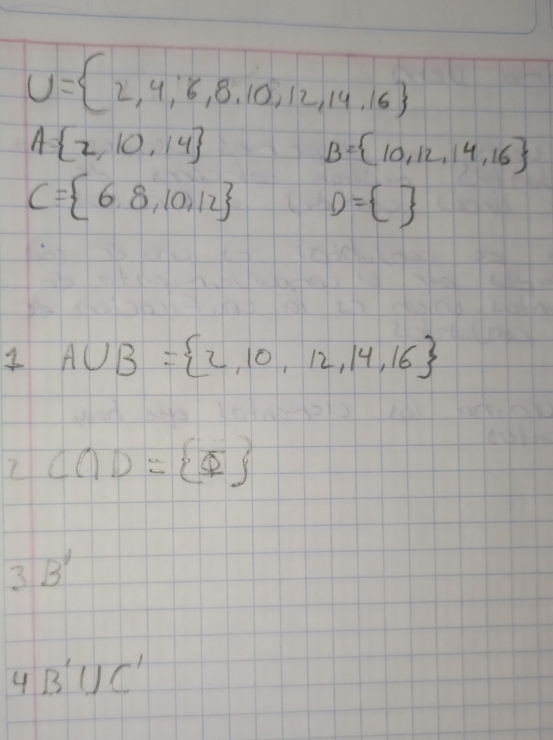 U={2,4,6,8,10,12,14,16}
A{2,10,14} B={10,12,14,16}
C={6,8,10,12} D={ }
1 A∪B ={2,10, 12,14,16}
2 C∩D = {Φ}
3 B'
4 B'∪C'